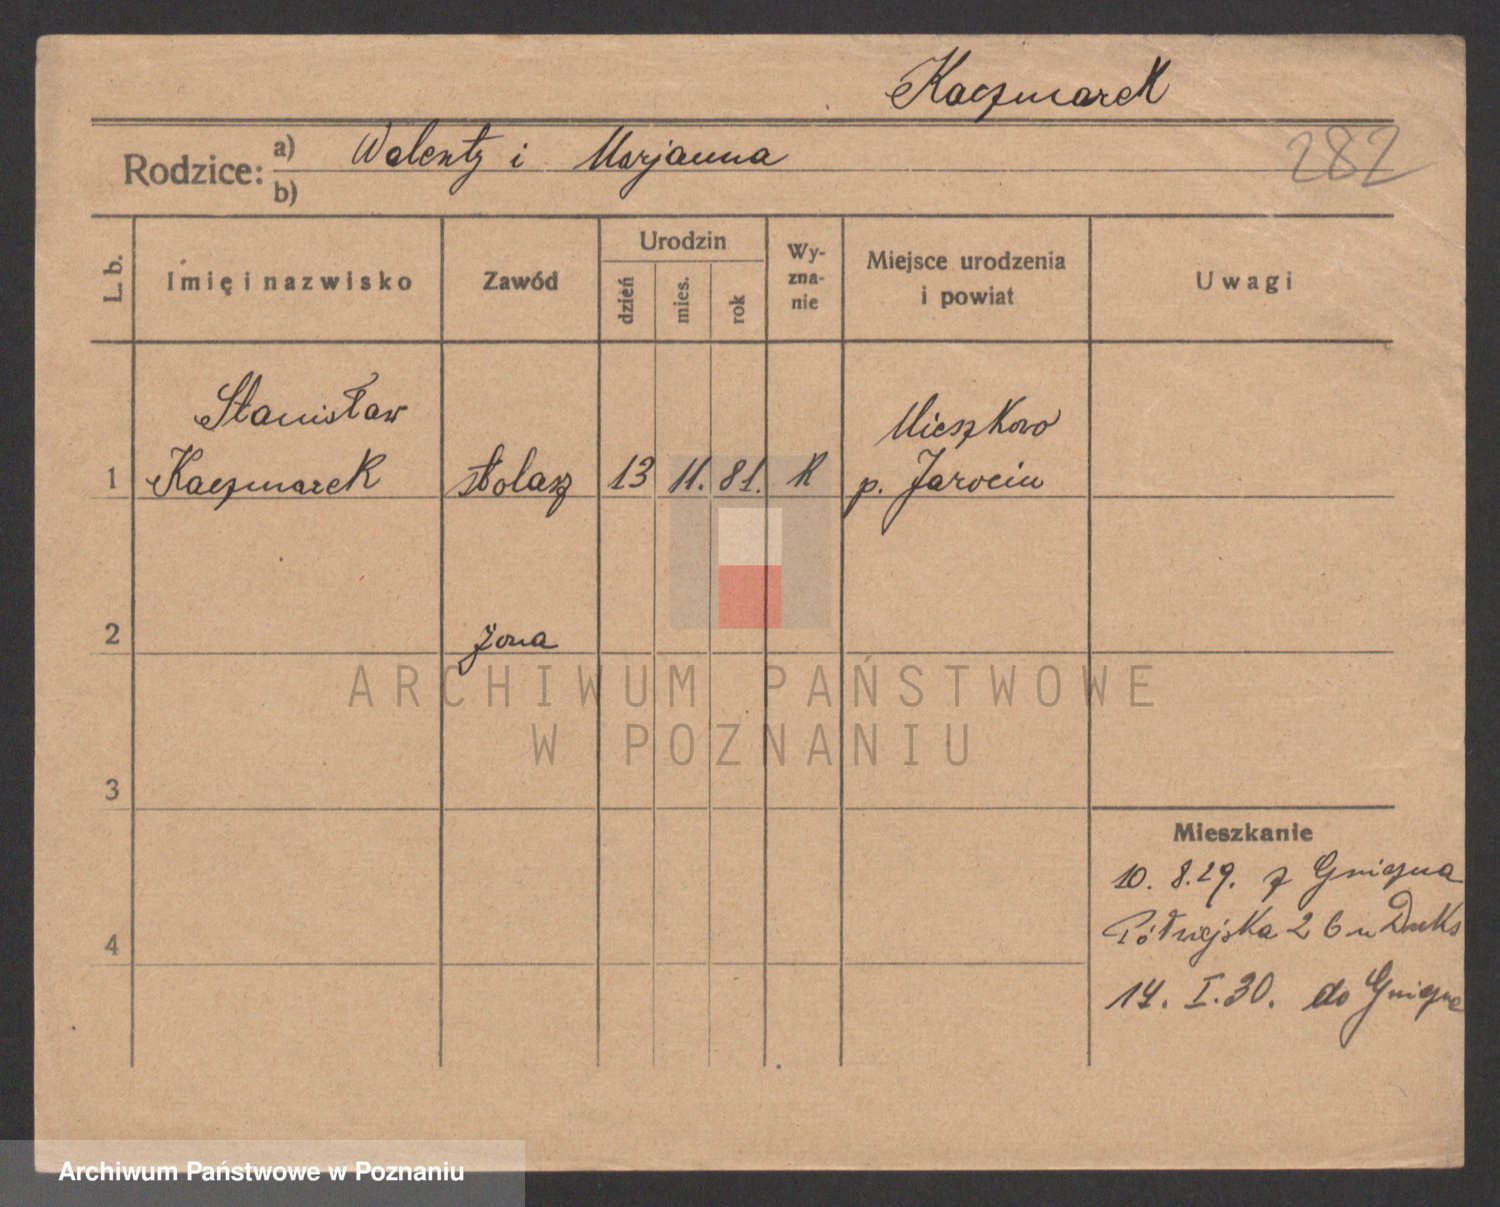 Kaczmarek
282
Rodzice:
a) Walenty i Marjanna
b)
L. b.
Imię i nazwisko
Zawód
Urodzin
dzień
mies.
rok
Wy-
zna-
nie
Miejsce urodzenia
i powiat
Uwagi
Stanisław
Mieszkowo
1 Kaczmarek stolarz 13 11. 81. R p. Jarocin
2 żona
ARCHIWUM PAŃSTWOWE
W POZNANIU
3
Mieszkanie
10. 8.29. z Gniezna
Półwiejska 26 u
4
14. I.30. do Gniezna
Archiwum Państwowe w Poznaniu